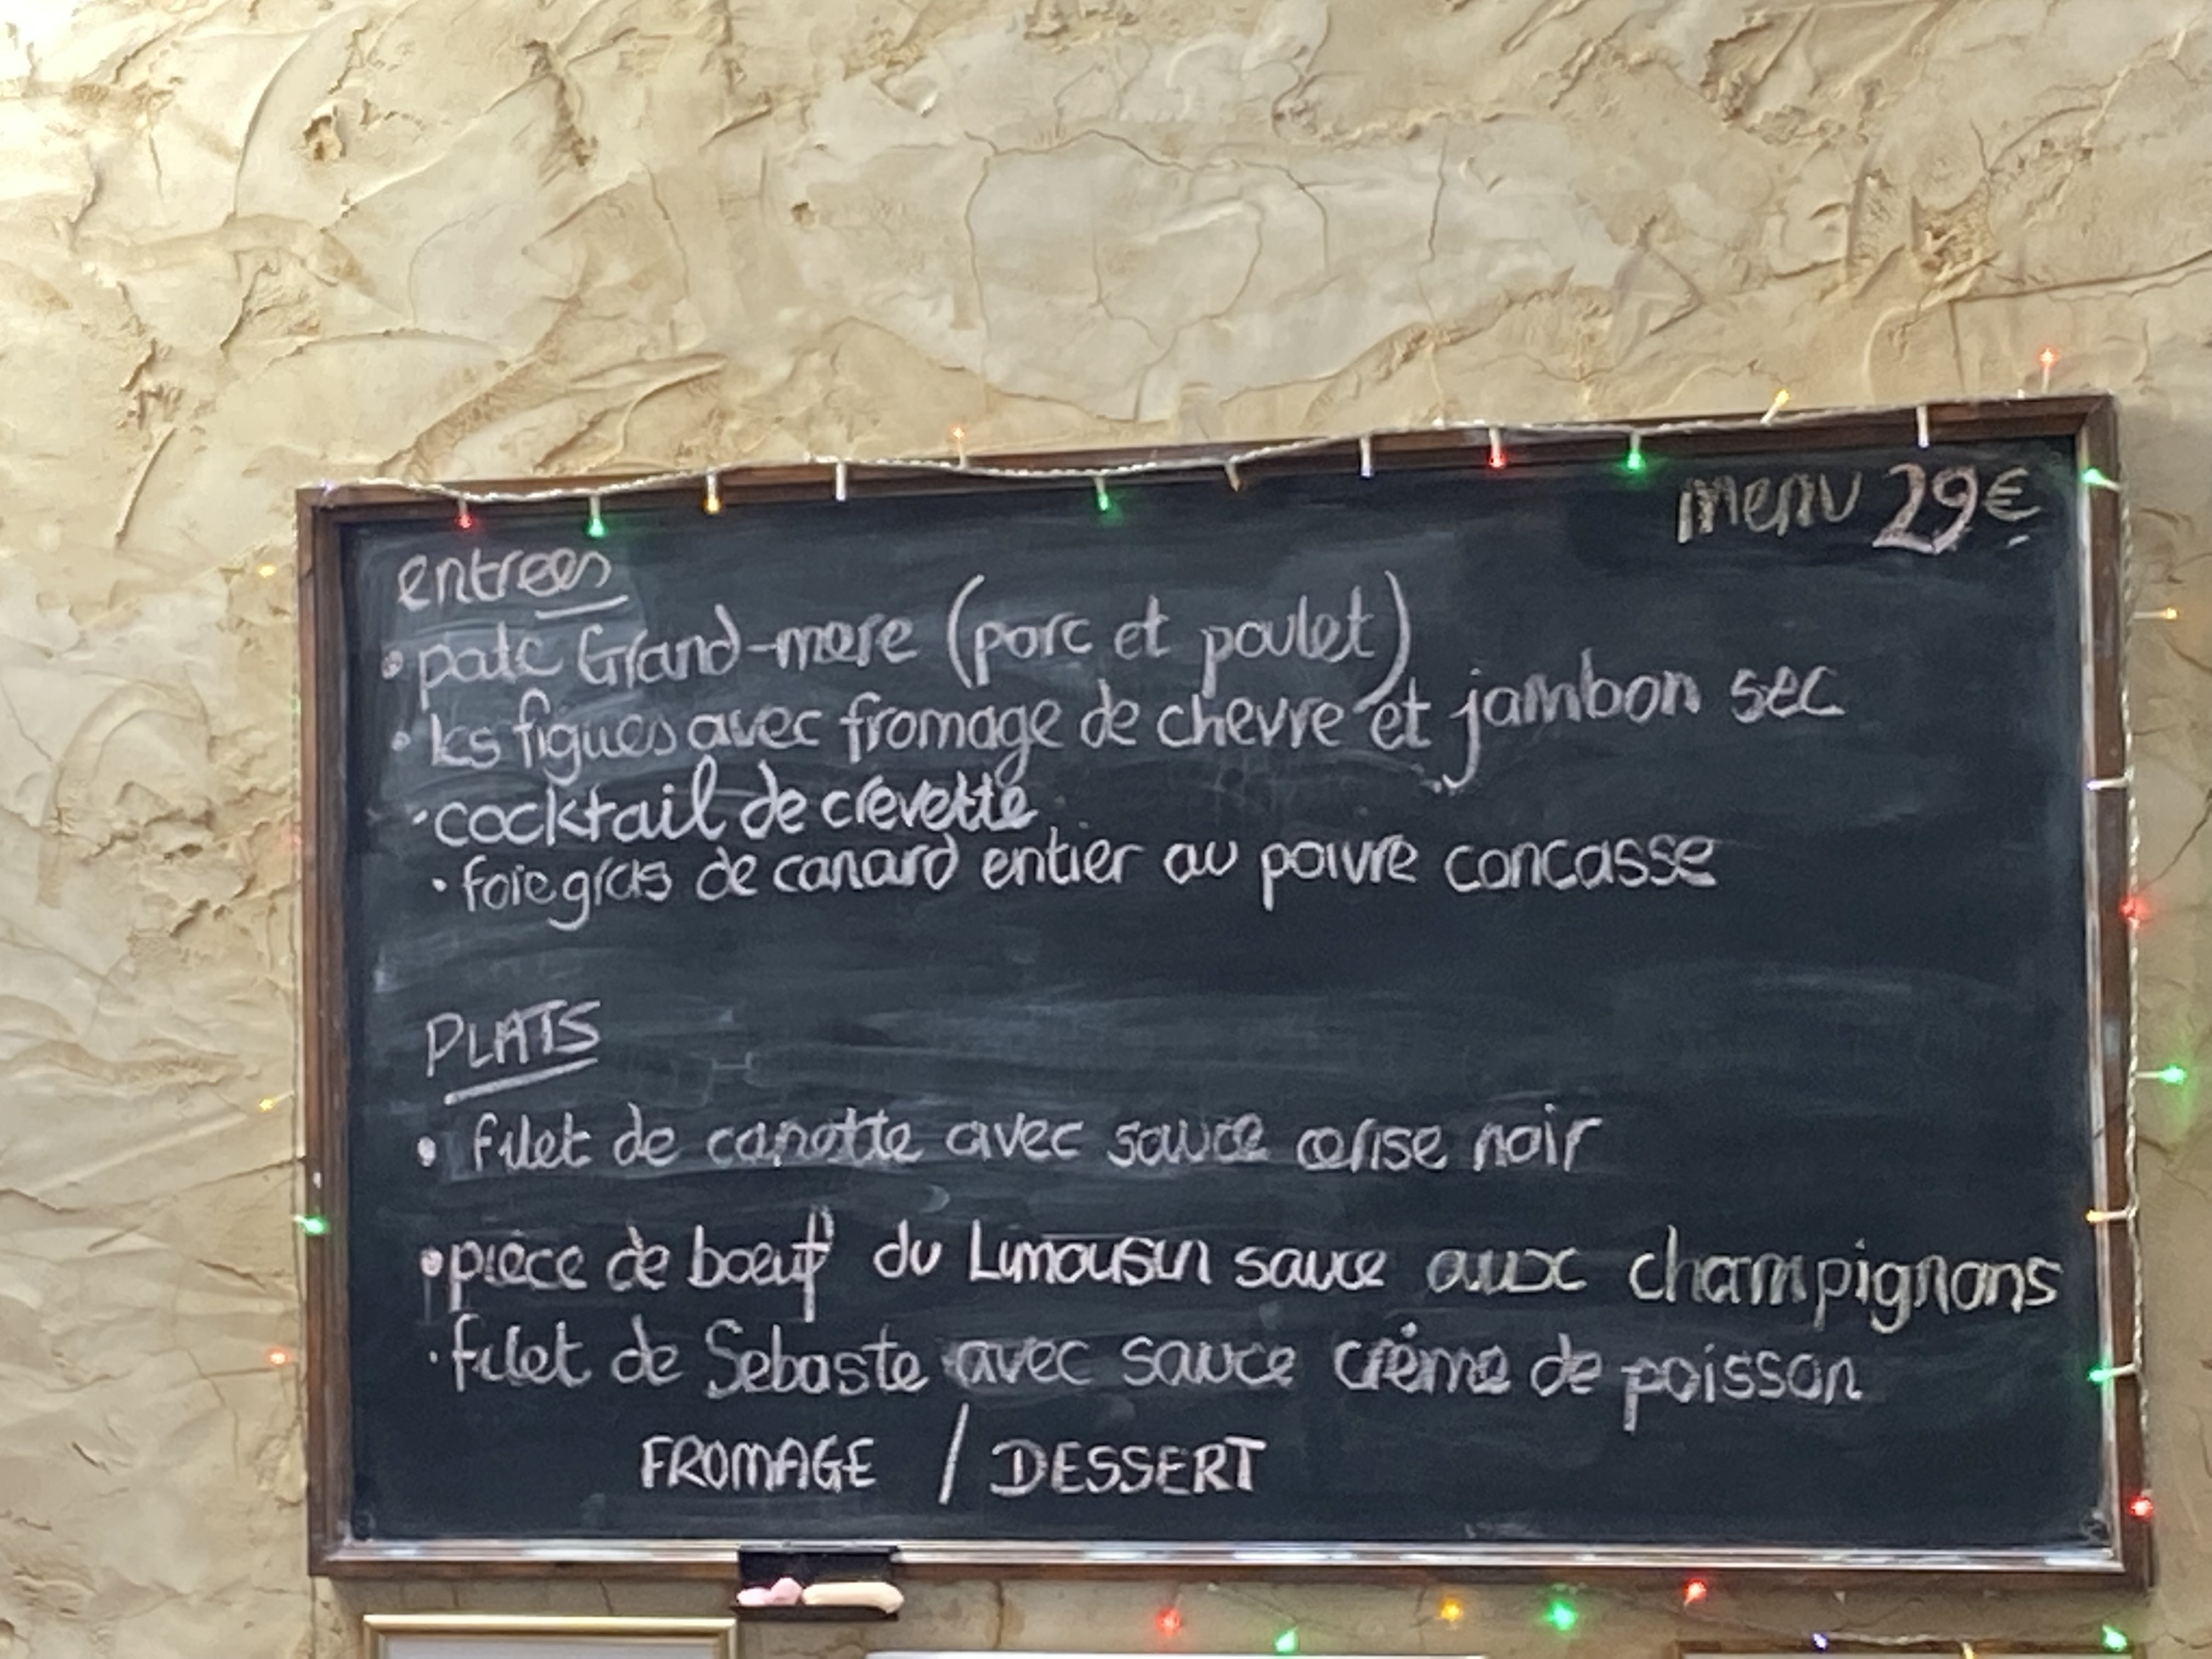 menu 29€
entrees
• pate Grand-mere (porc et poulet)
• les figues avec fromage de chevre et jambon sec
• cocktail de crevette
• foie gras de canard entier au poivre concasse
PLATS
• filet de canette avec sauce cerise noir
• piece de boeuf du Limousin sauce aux champignons
• filet de Sebaste avec sauce crème de poisson
FROMAGE / DESSERT